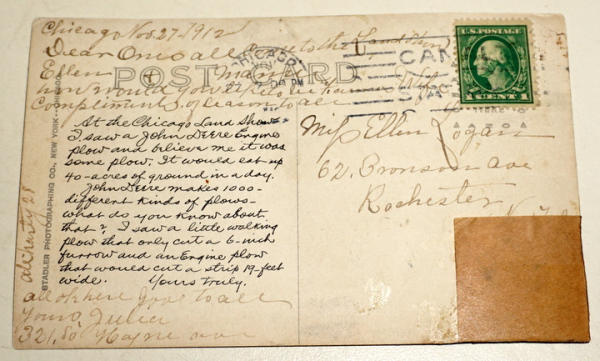 Chicago Nov. 27-1912
Dear Ones all to the Land Show
Ellen + Mamie
how would you
Compliments of season to all
POST CARD
CHICAGO
NOV
U.S. POSTAGE
1 CENT 1
At the Chicago Land Show
I saw a John Deere Engine
plow and believe me it was
some plow. It would eat up
40-acres of ground in a day.
John Deere makes 1000-
different kinds of plows-
what do you know about
that? I saw a little walking
plow that only cut a 6-inch
furrow and an Engine plow
that would cut a strip 19-feet
wide. Yours truly.
all O.K. here love to all
Yours Julia
321. So
Miss Ellen Logan
62, Bronson Ave
Rochester
N.Y.
STADLER PHOTOGRAPHING CO., NEW YORK-CHICAGO